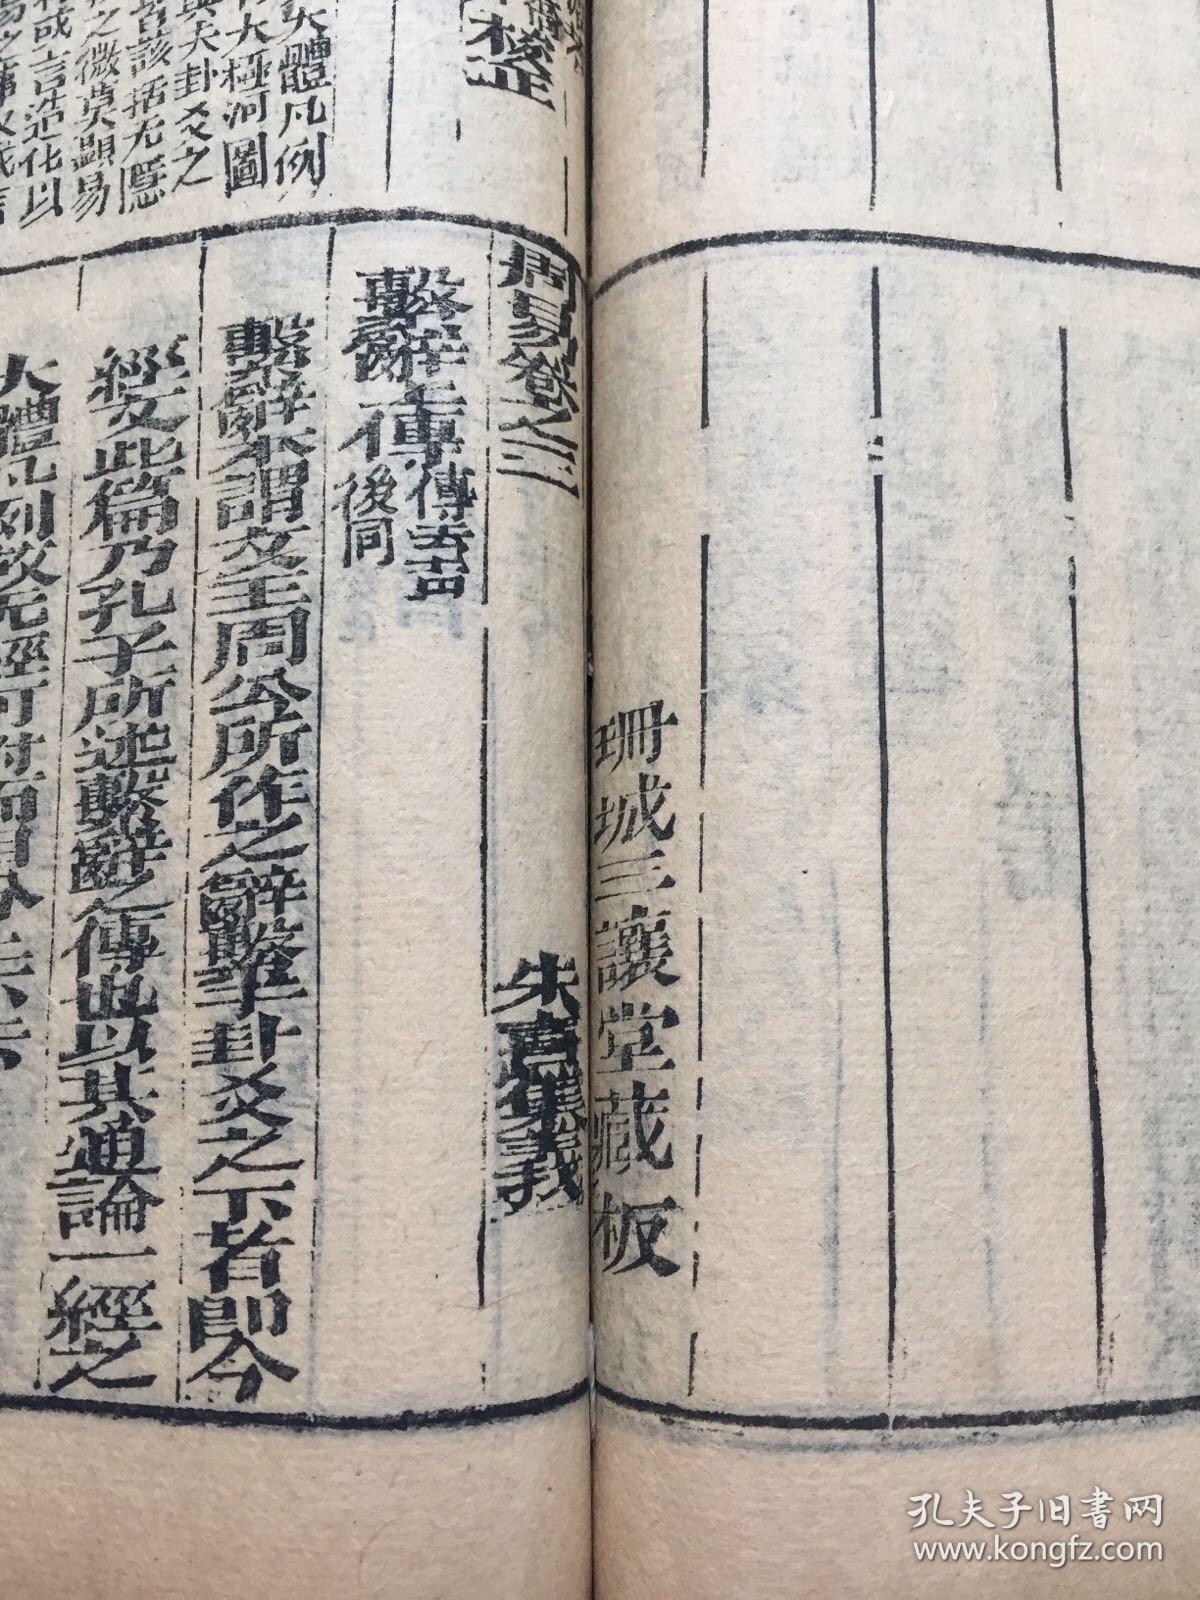 珊城三讓堂藏板
校正
大體凡例
大極河圖
與夫卦爻之
皆該括无隱
之微莫顯易
成言造化以
周易卷之三
朱熹集義
繫辭上傳
傳去声
後同
繫辭本謂文王周公所作之辭繫乎卦爻之下者即今
經文此篇乃孔子所述繫辭之傳也以其通論一經之
大體凡例故无經可附而自分上下云
孔夫子旧书网
www.kongfz.com